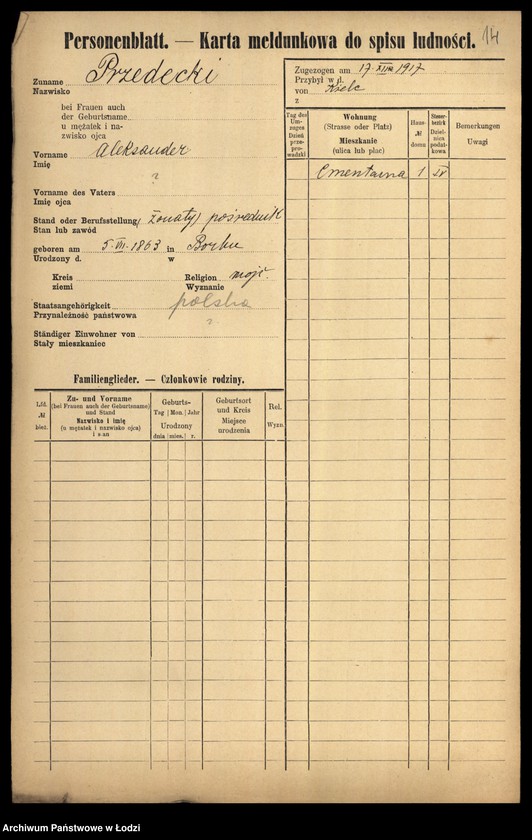 Personenblatt. — Karta meldunkowa do spisu ludności. 14
Zuname Przedecki
Nazwisko
bei Frauen auch
der Geburtsname
u mężatek i na-
zwisko ojca
Vorname Aleksander
Imię
?
Vorname des Vaters
Imię ojca
Stand oder Berufsstellung (żonaty) pośrednik
Stan lub zawód
geboren am 5. VII. 1863 in Borku
Urodzony d. w
Kreis Religion mojż.
ziemi Wyznanie
Staatsangehörigkeit polska
Przynależność państwowa ?
Ständiger Einwohner von
Stały mieszkaniec
Zugezogen am 17. XII 1917
Przybył w d.
von Kielc
z
Tag des Um-zuges
Dzień przepro-wadzki
Wohnung
(Strasse oder Platz)
Mieszkanie
(ulica lub plac)
Haus-
№
domu
Steuer-bezirk
Dzielnica podat-kowa
Bemerkungen
Uwagi
Cmentarna 1 IV
Familienglieder. — Członkowie rodziny.
Lfd.
№
bież.
Zu- und Vorname
(bei Frauen auch der Geburtsname)
und Stand
Nazwisko i imię
(u mężatek i nazwisko ojca)
i stan
Geburts-
Tag Mon. Jahr
Urodzony
dnia mies. r.
Geburtsort
und Kreis
Miejsce
urodzenia
Rel.
Wyzn.
Archiwum Państwowe w Łodzi